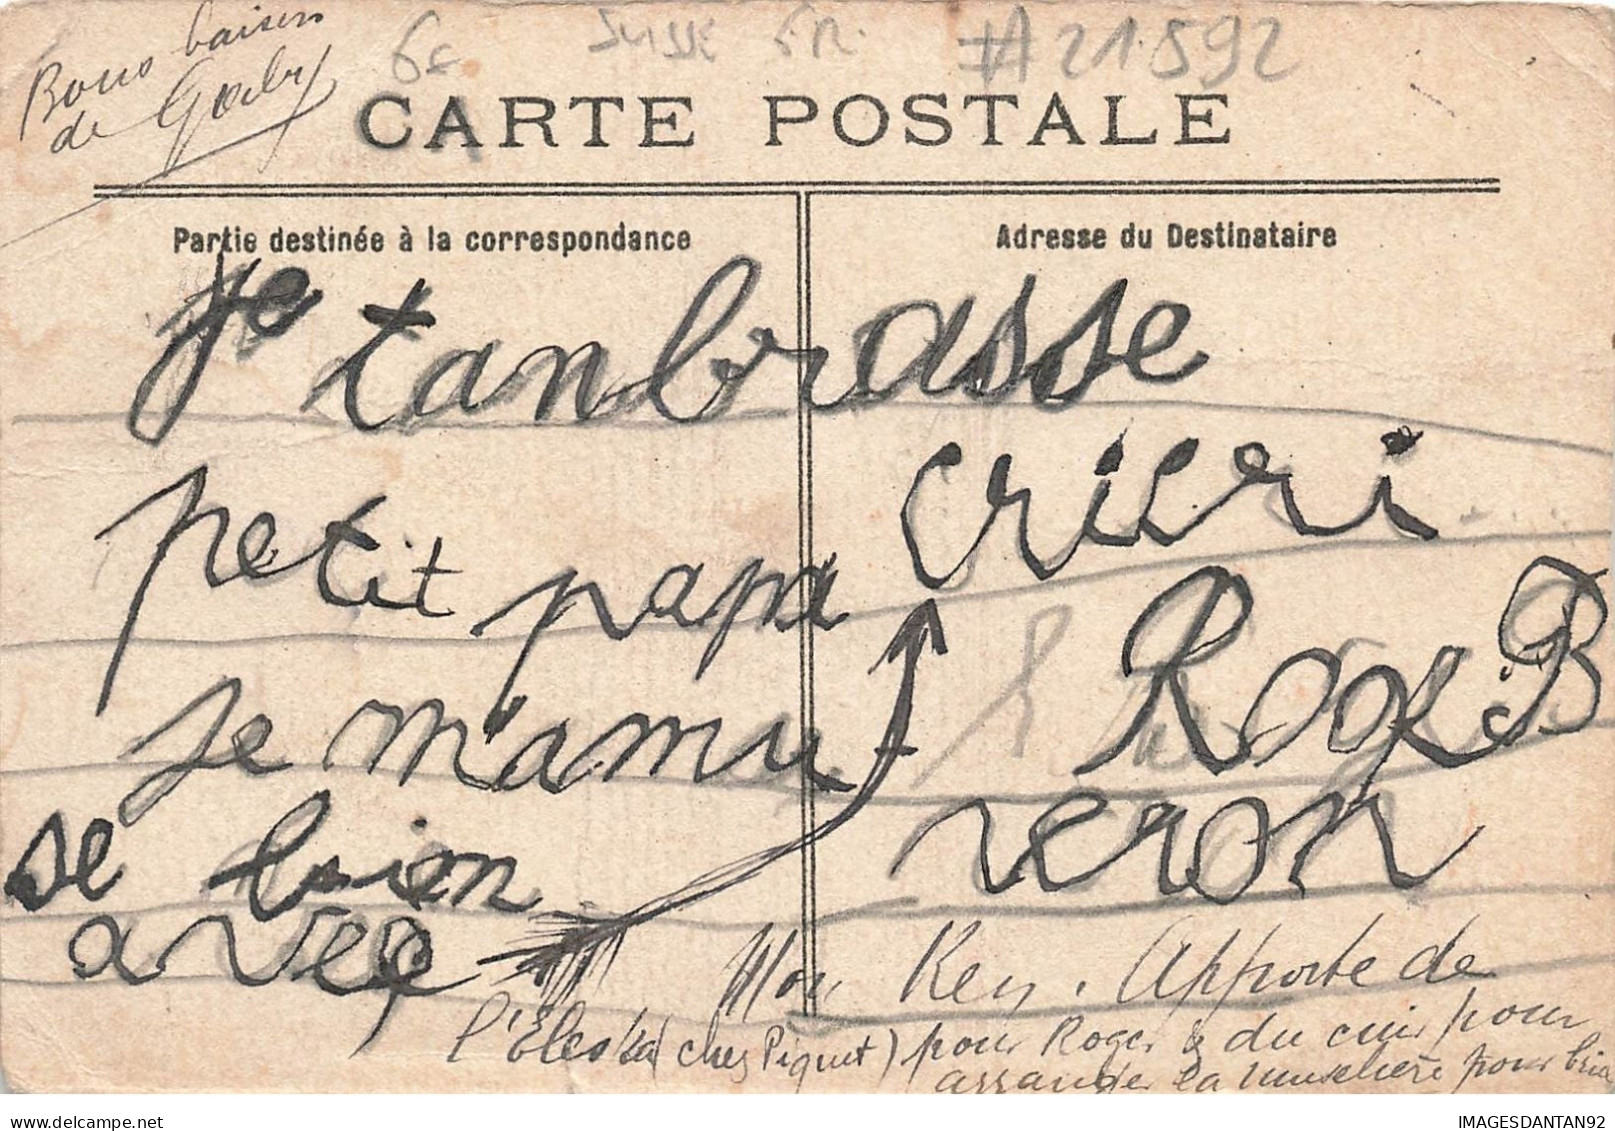 Bons baisers
de Gaby
6€ SUISSE FR. #A21592
CARTE POSTALE
Partie destinée à la correspondance
Adresse du Destinataire
je tanbrasse
petit papa cricri
je m'amu Roger B
se bien veron
avec
Mon Key. Apporte de
l' (chez Piquet) pour Roger & du cuir pour
arranger la muselière pour
IMAGESDANTAN92